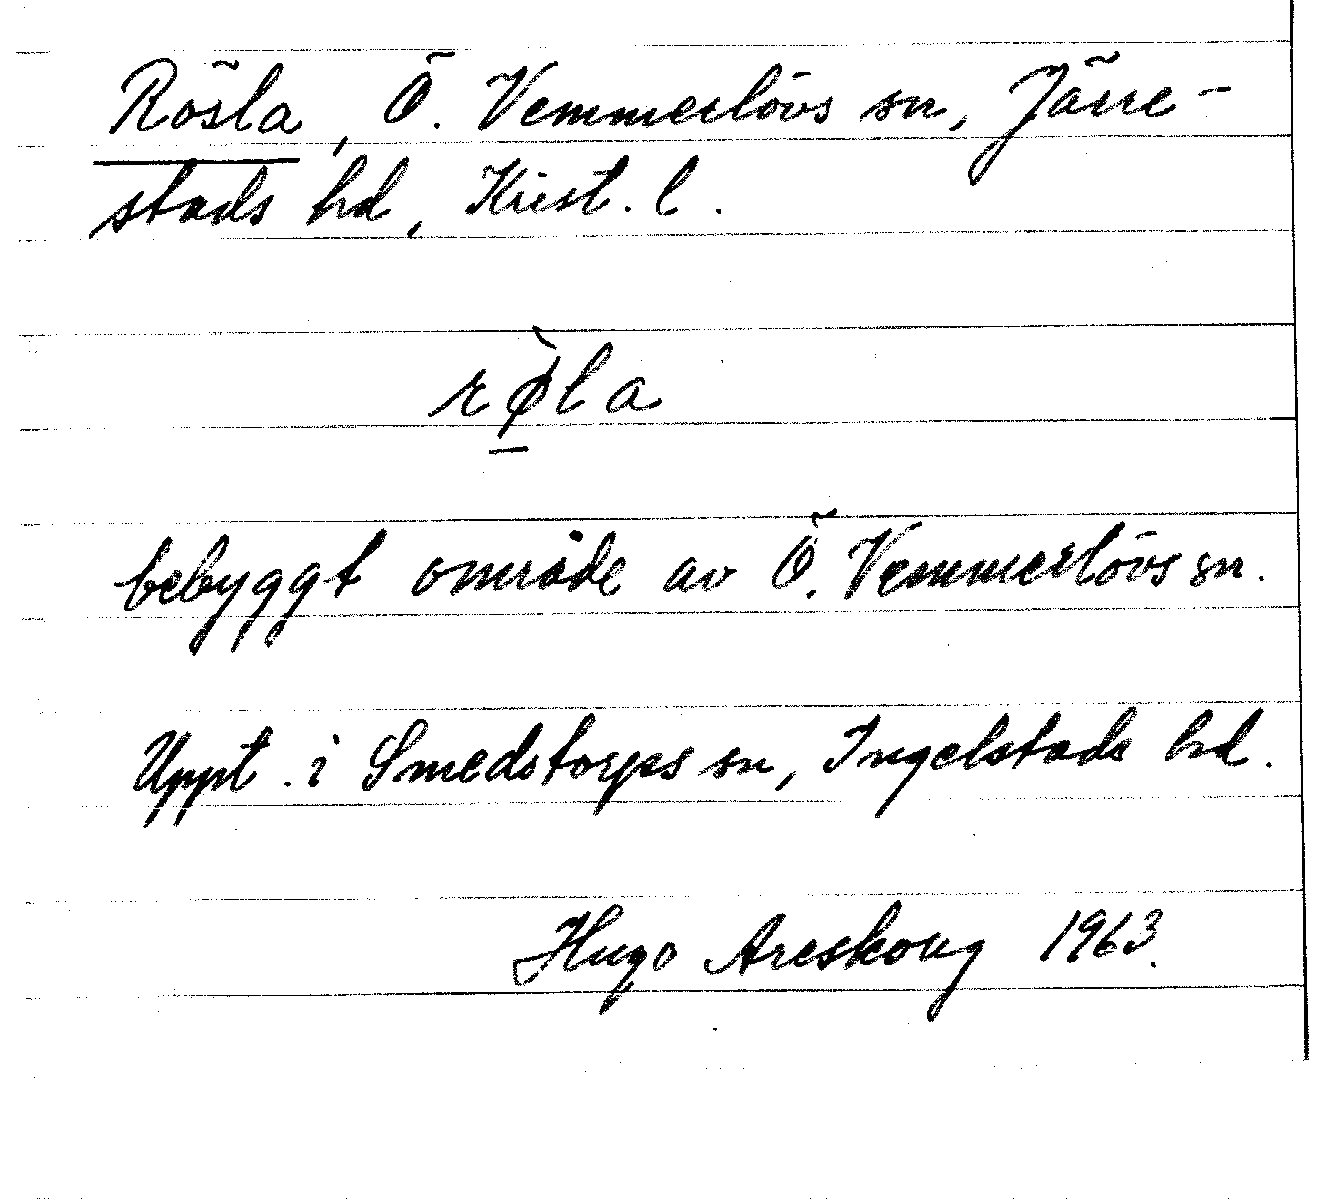 Rösla, Ö. Vemmerlövs sn, Järre-
stads hd, Krist. l.
rø̠̀la
bebyggt område av Ö. Vemmerlövs sn.
Uppt. i Smedstorps sn, Ingelstads hd.
Hugo Areskoug 1963.